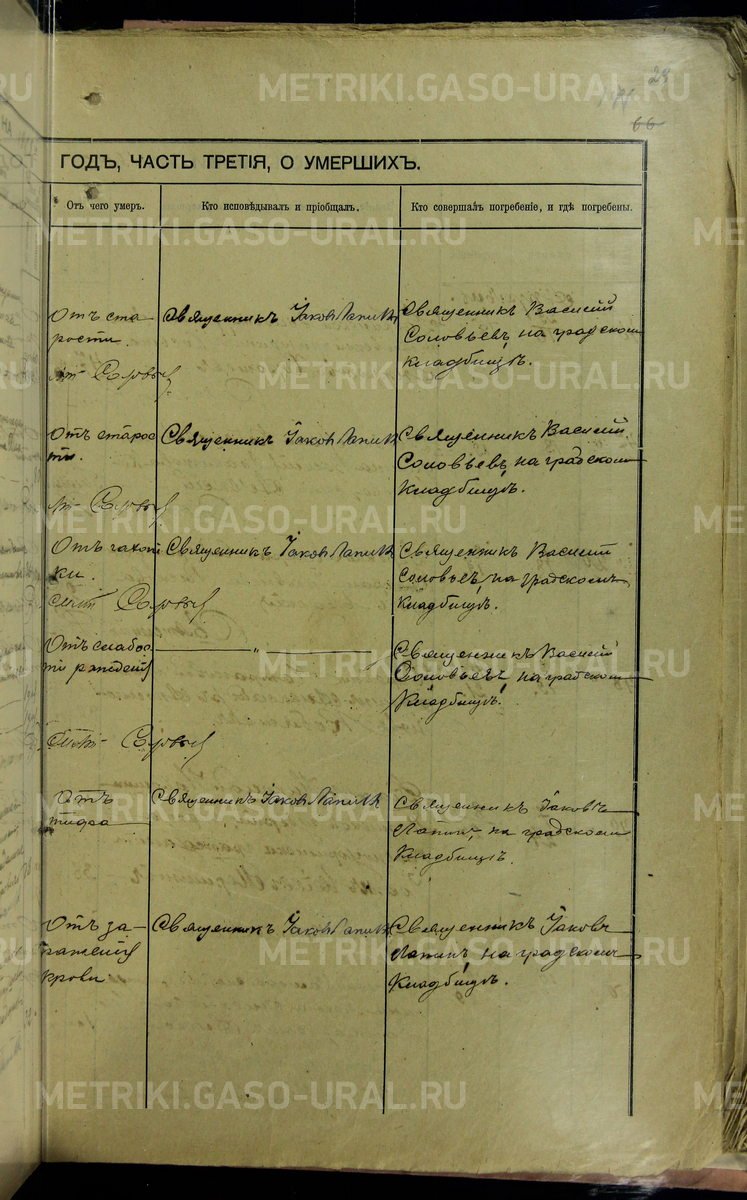 23
66
ГОДЪ, ЧАСТЬ ТРЕТІЯ, О УМЕРШИХЪ.
Отъ чего умеръ.
Кто исповѣдывалъ и пріобщалъ.
Кто совершалъ погребеніе, и гдѣ погребены.
METRIKI.GASO-URAL.RU
Отъ ста-
рости.
Священникъ Іаковъ Лапинъ
Священникъ Василій
Соловьевъ, на градскомъ
кладбищѣ.
Отъ старос
ти.
Священникъ Іаковъ Лапинъ
Священникъ Василій
Соловьевъ, на градскомъ
кладбищѣ.
Отъ чахот
ки.
Священникъ Іаковъ Лапинъ
Священникъ Василій
Соловьевъ, на градскомъ
кладбищѣ.
Отъ слабос
ти рожденія
— „ —
Священникъ Василій
Соловьевъ, на градскомъ
кладбищѣ.
Отъ
тифа
Священникъ Іаковъ Лапинъ
Священникъ Іаковъ
Лапинъ, на градскомъ
кладбищѣ.
Отъ за-
раженія
крови
Священникъ Іаковъ Лапинъ
Священникъ Іаковъ
Лапинъ, на градскомъ
кладбищѣ.